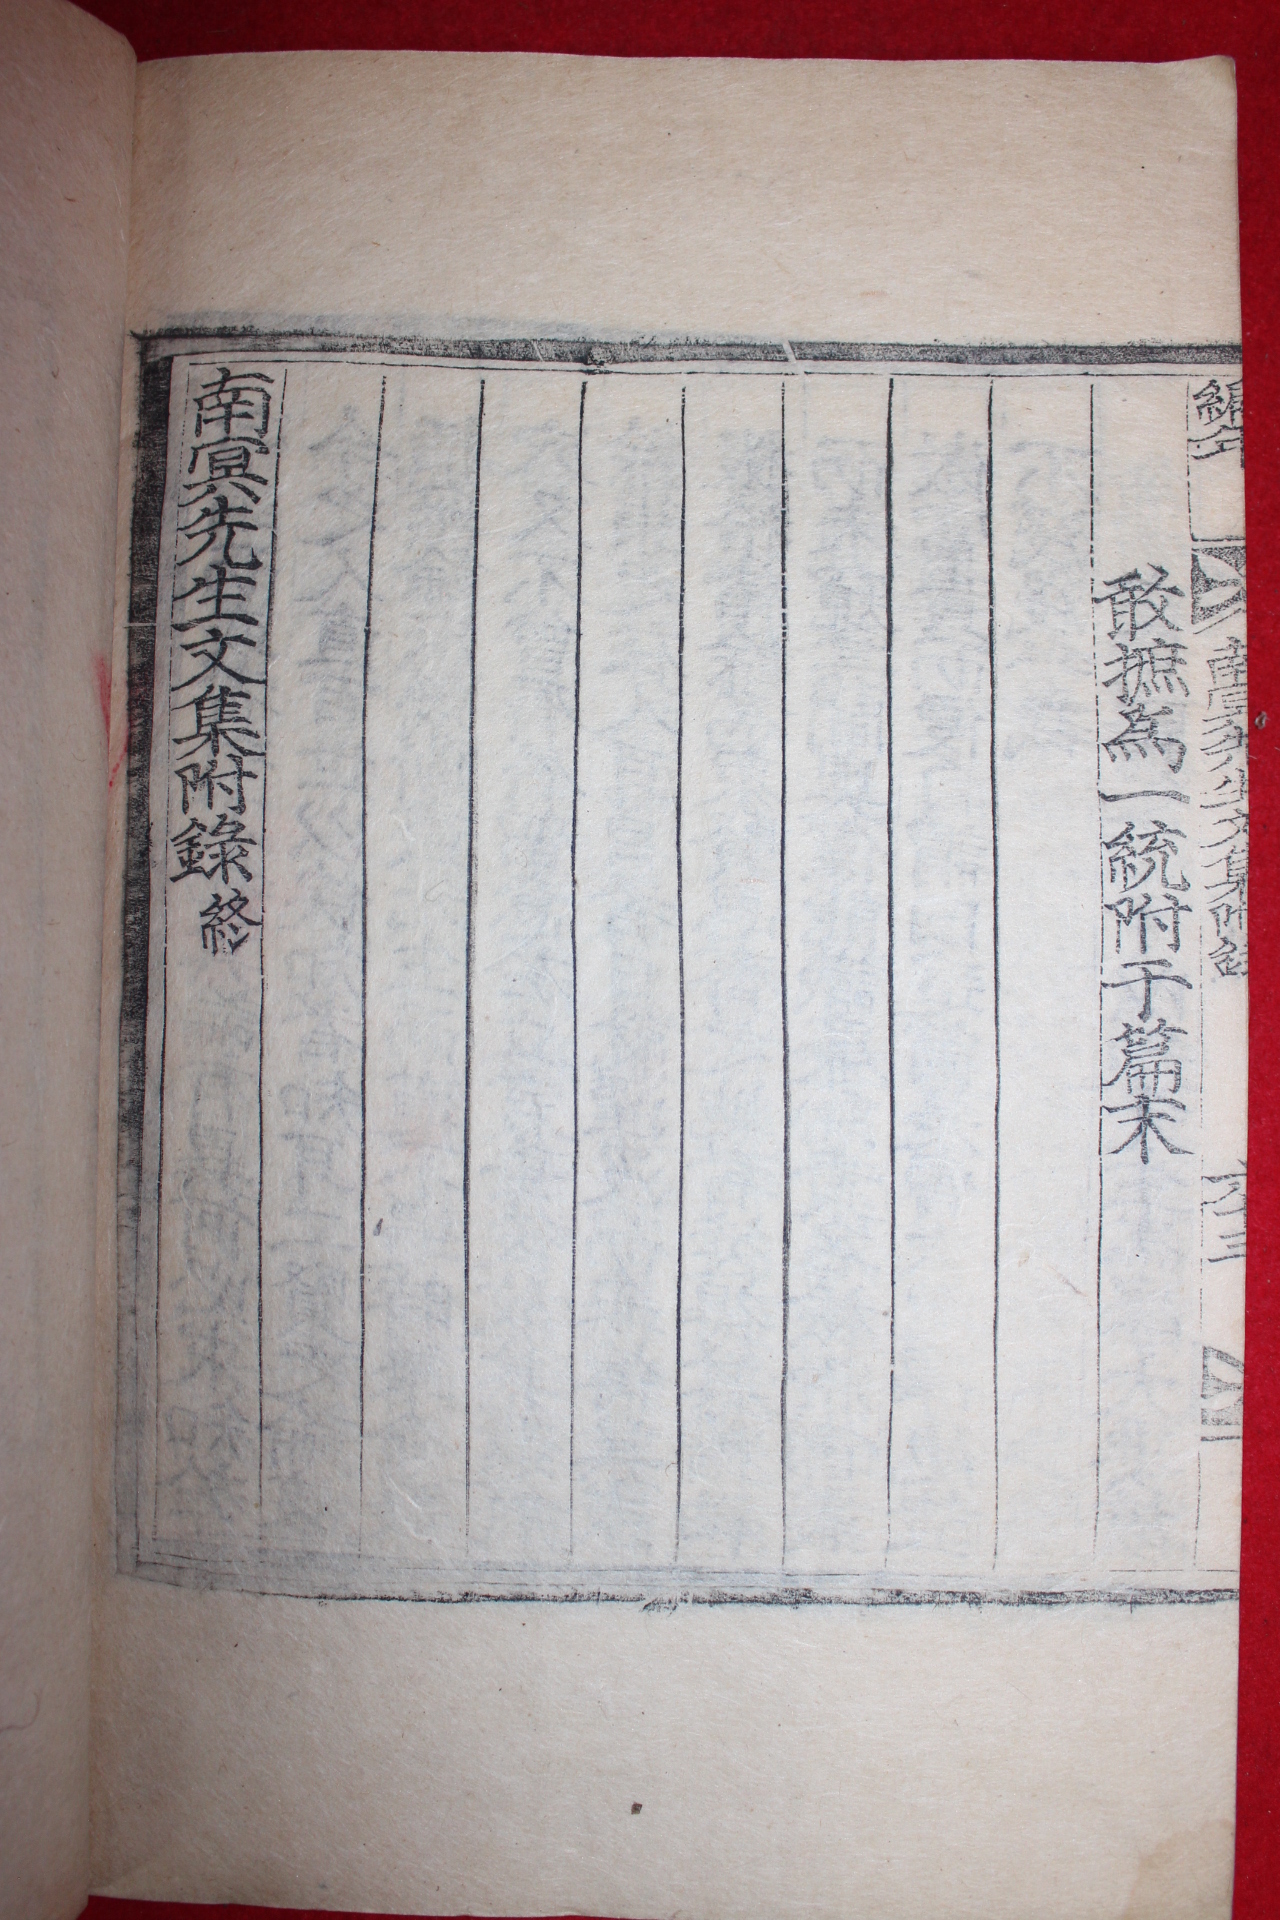 編年
南冥先生文集附錄
六十三
敢摭為一統附于篇末
南冥先生文集附錄 終